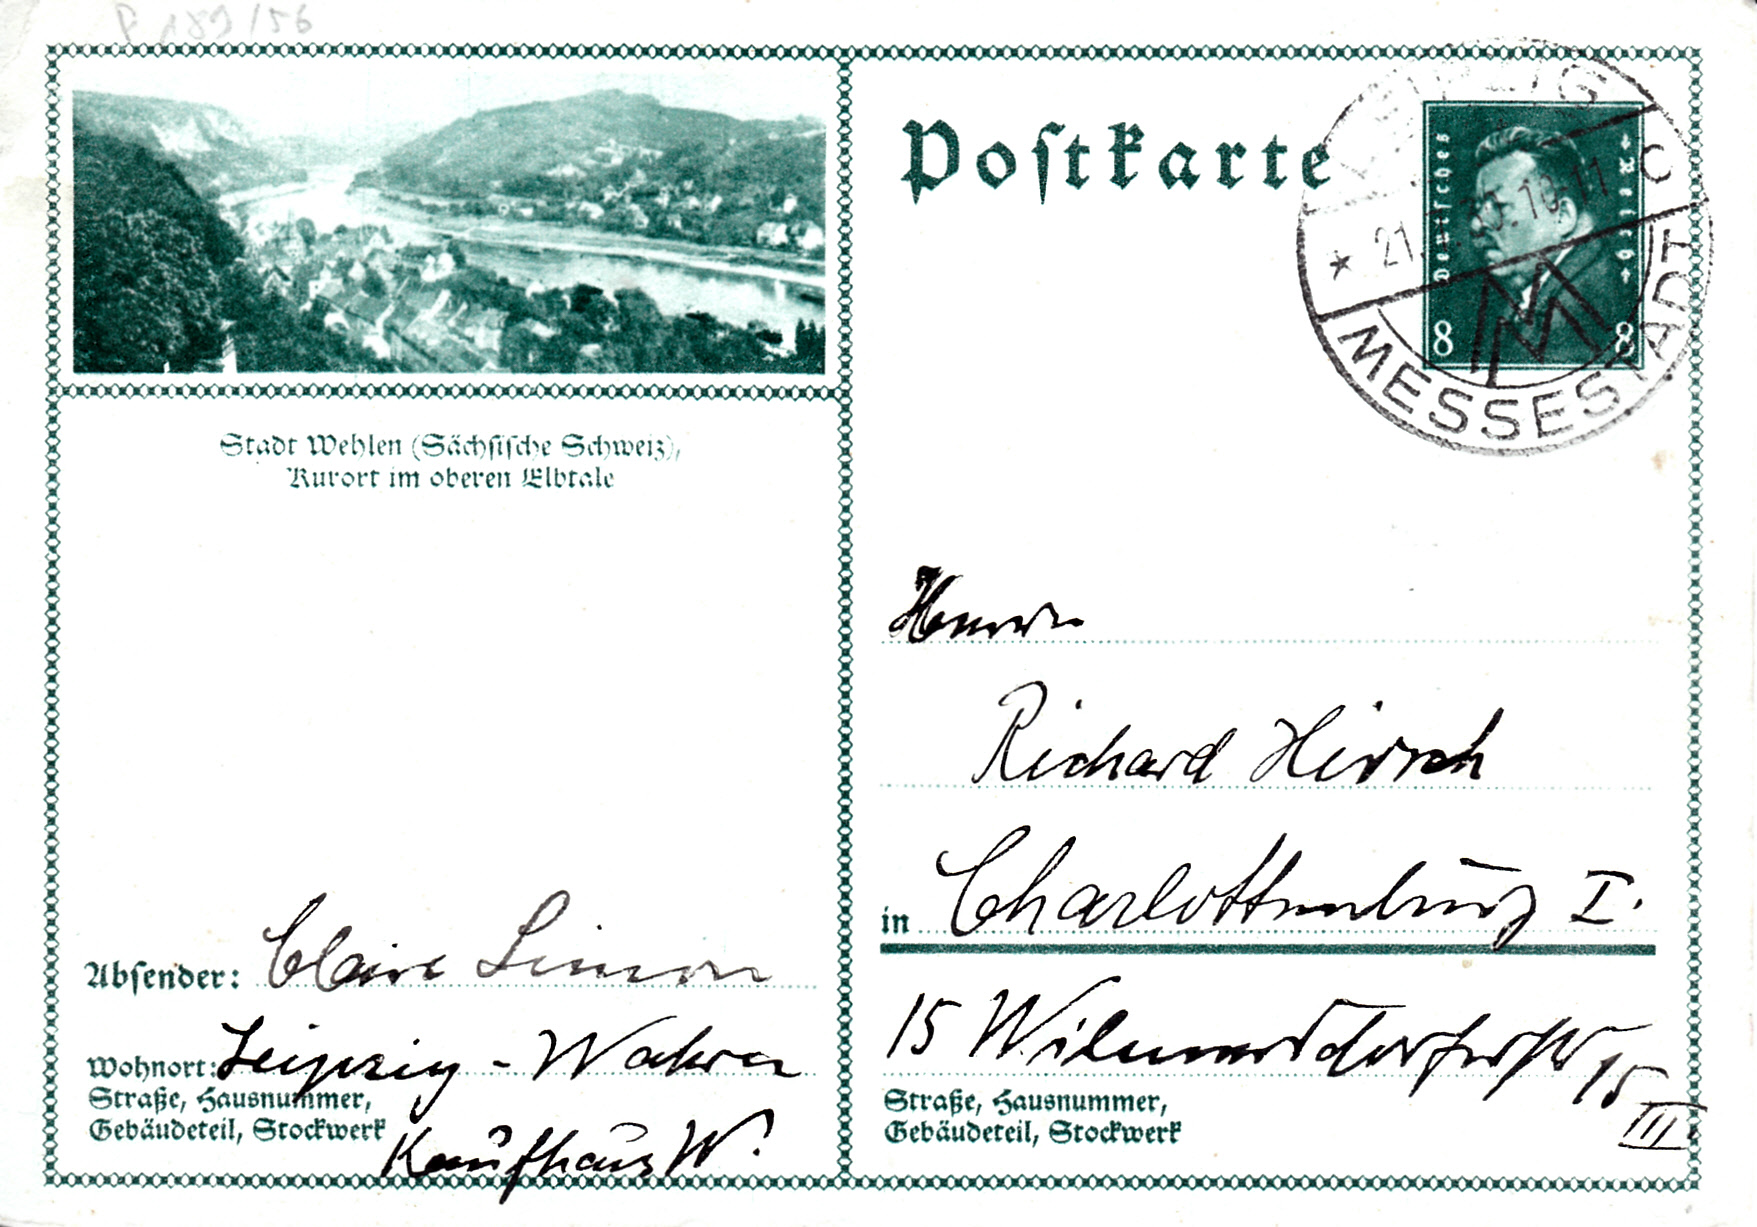 P 189/56
Postkarte
LEIPZIG C
* 21. 30. 10-11
MESSESTADT
MM
Deutsches Reich
8 8
Stadt Wehlen (Sächsische Schweiz),
Kurort im oberen Elbtale
Herrn
Richard Hirsch
in Charlottenburg I.
15 Wilmersdorferstr 15
III.
Straße, Hausnummer,
Gebäudeteil, Stockwerk
Absender: Claire Simon
Wohnort: Leipzig - Wahren
Straße, Hausnummer,
Gebäudeteil, Stockwerk
Kaufhaus W.